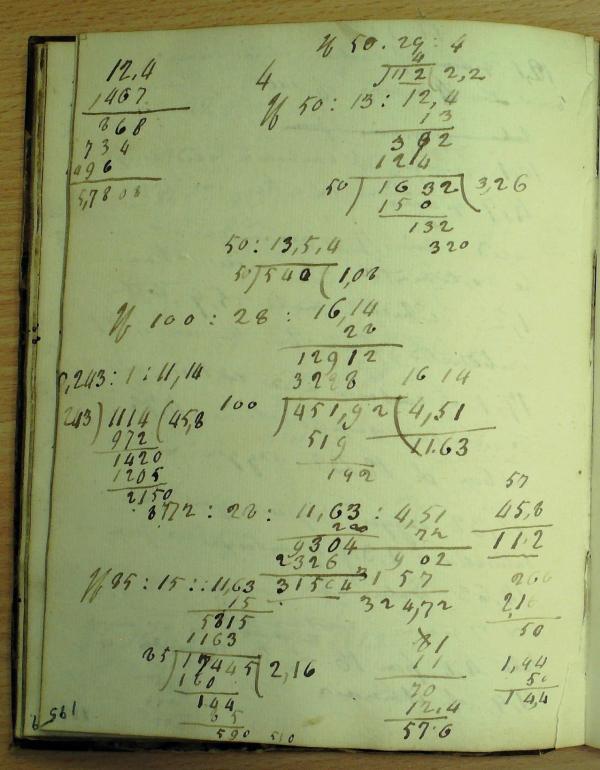 If 50 . 29 : 4
4
4
112 2,2
12,4
1467
868
734
496
5,7808
If 50 : 13 : 12,4
13
372
124
50 ) 1632 ( 3,26
150
132
320
50 : 13,5,4
50 ) 540 ( 1,08
If 100 : 28 : 16,14
28
12912
3228
16 14
100 ) 451,92 ( 4,51
11.63
519
192
,243 : 1 : 11,14
243 ) 1114 ( 45,8
972
1420
1205
2150
72 : 28 : 11,63 : 4,51
9304
2326
3156
72
902
3157
324,72
57
45,8
11.2
If 85 : 15 :: 11,63
15
5815
1163
85 ) 17445 ( 2,16
144
85
590
510
266
2,16
50
81
11
70
12.4
57.6
1,44
50
1 4,4
1951